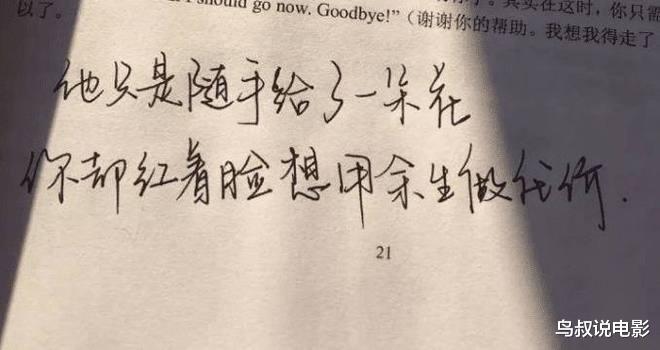 I should go now. Goodbye!”（谢谢你的帮助。我想我得走了
以了。
他只是随手给了一朵花
你却红着脸想用余生做代价.
21
鸟叔说电影